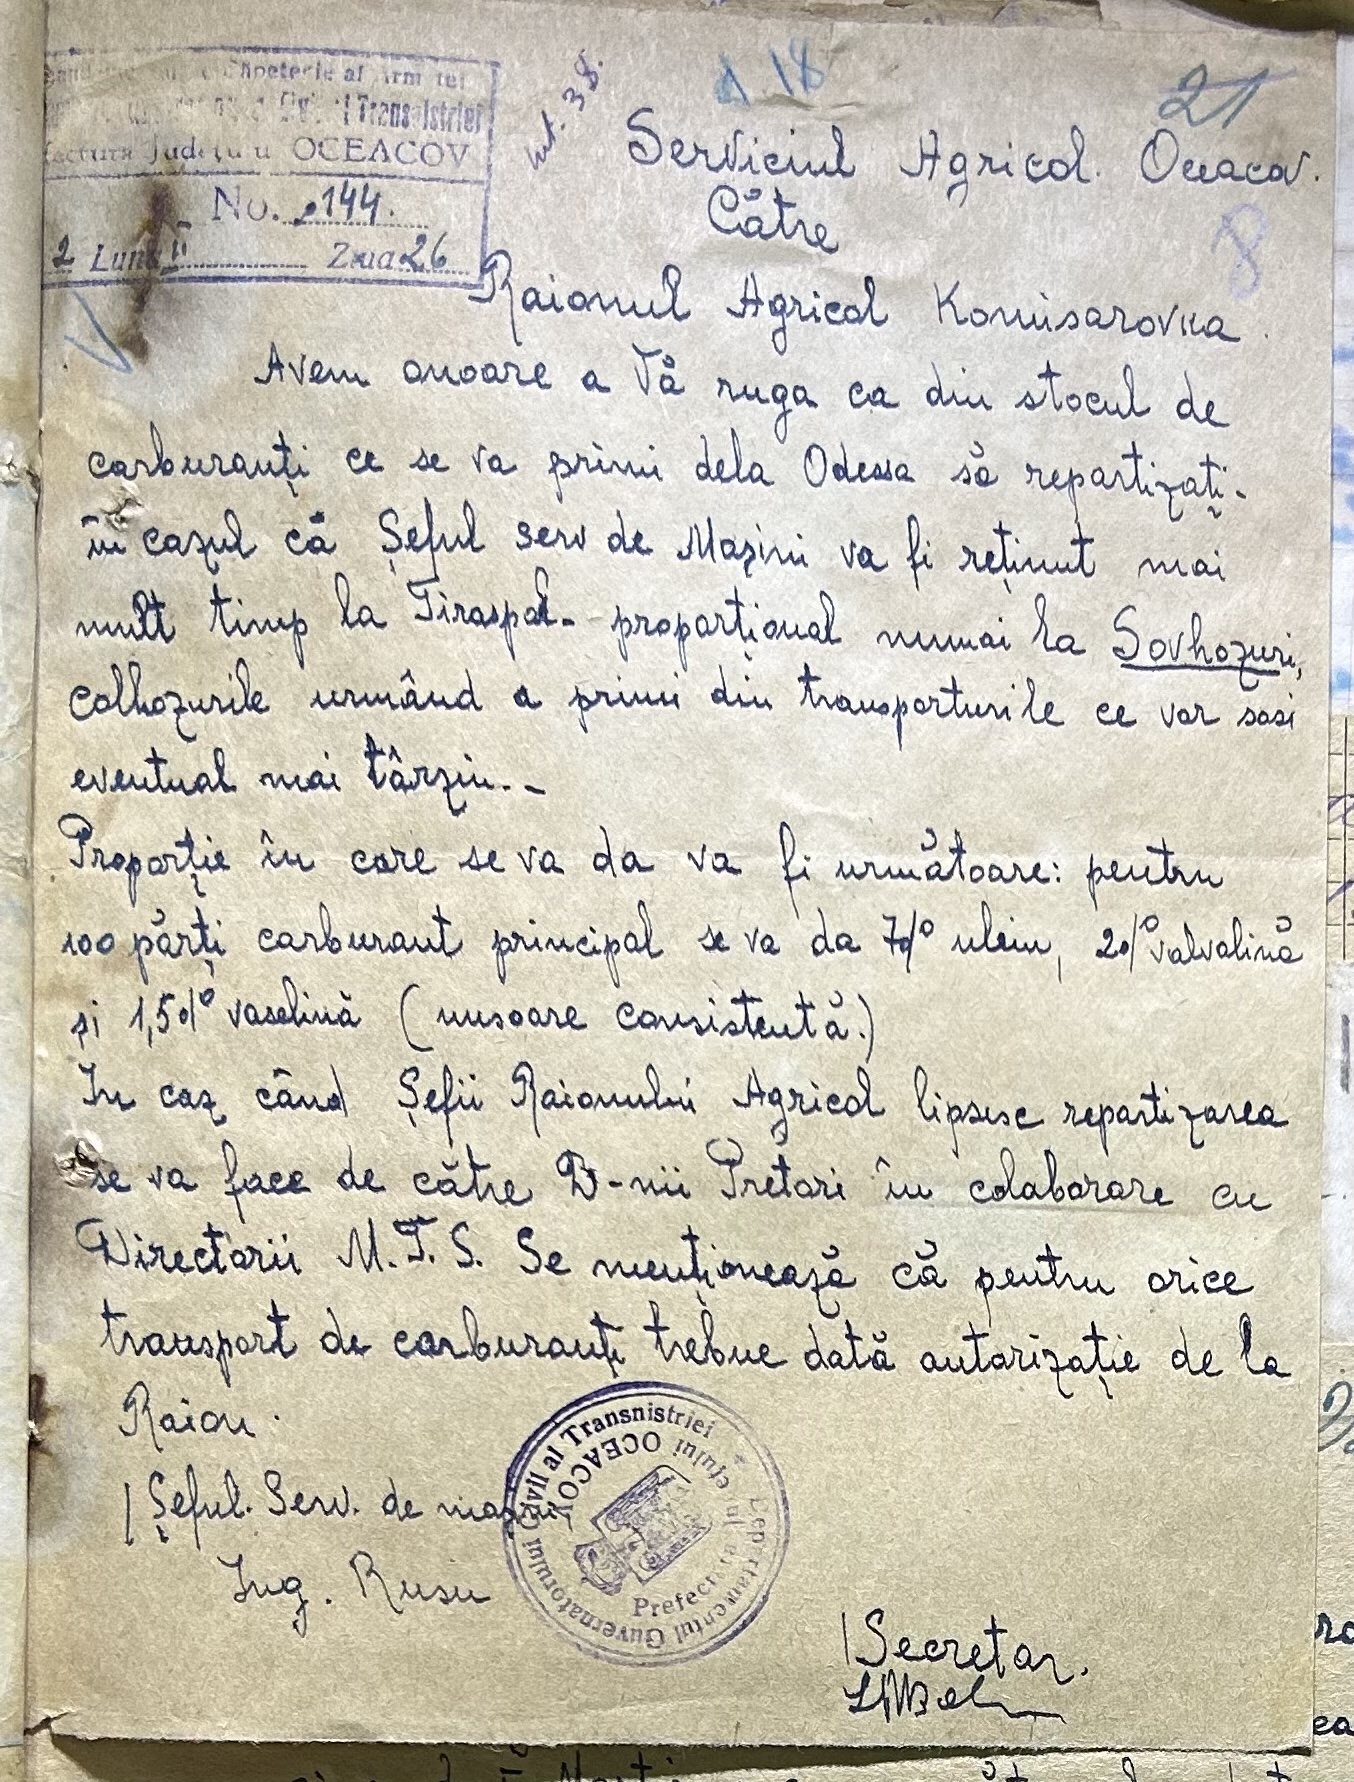 Int. 38.
18
21
Capeteniei al Armatei
Civil Transnistriei
Județului OCEACOV
No. 144.
2 Luna II Ziua 26
8
Serviciul Agricol Oceacov.
Către
Raionul Agricol Komisarovka.
Avem onoare a Vă ruga ca din stocul de
carburanți ce se va primi dela Odessa să repartizați-
în cazul că Șeful serv de Mașini va fi reținut mai
mult timp la Tiraspol- proporțional numai la Sovhozuri,
colhozurile urmând a primi din transporturile ce vor sosi
eventual mai târziu.-
Proporție în care se va da va fi următoare: pentru
100 părți carburant principal se va da 7% uleiu, 2% valvalină
și 1,5% vaselină (unsoare consistentă.)
In caz când Șefii Raionului Agricol lipsesc repartizarea
se va face de către D-nii Pretori în colaborare cu
Directorii M.T.S. Se menționează că pentru orice
transport de carburanți trebue dată autorizație de la
Raion.
/ Șeful. Serv. de mașini
Ing. Rusu
Departamentul Guvernatorului Civil al Transnistriei
Prefectura Județului OCEACOV
/ Secretar.